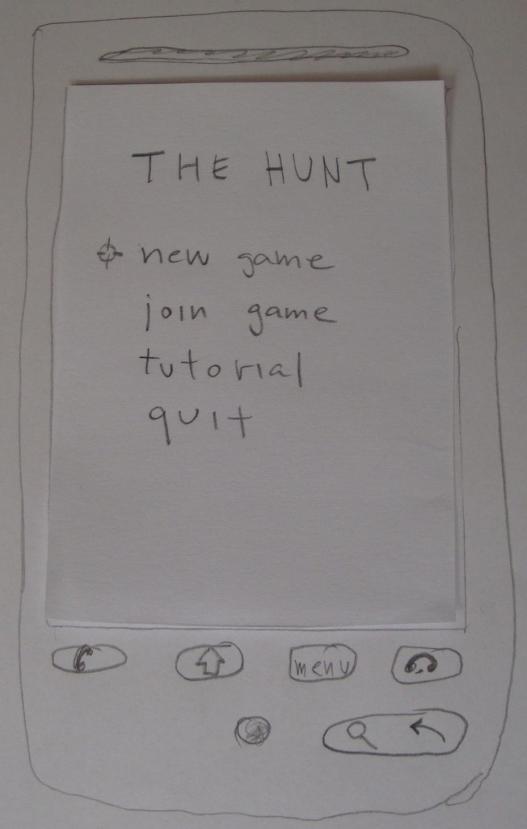 THE HUNT
new game
join game
tutorial
quit
menu